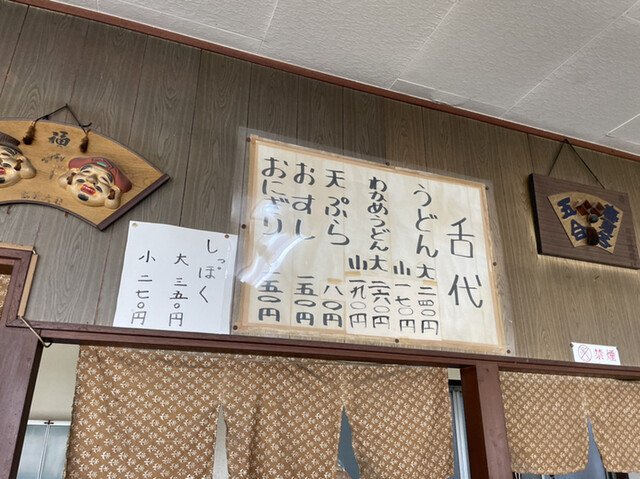 舌代
うどん大 二四〇円
小 一七〇円
わかめうどん大 二六〇円
小 一九〇円
天ぷら 一八〇円
おすし 一五〇円
おにぎり 一五〇円
しっぽく
大 三五〇円
小 二七〇円
福
禁煙